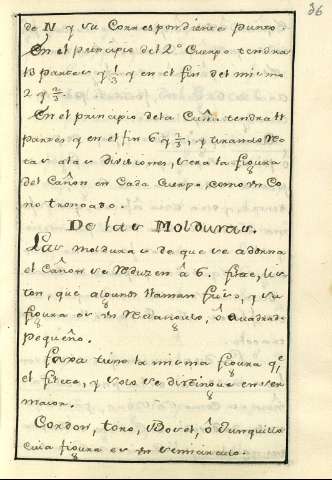 36
de N y su Correspondiente punto.
En el principio del 2º Cuerpo tendra
13 partes y 1/3 y en el fin del mismo
2 y 2/3.
En el principio dela Caña tendra 11
partes y en el fin 6 y 2/3, y tirando
tas alas divisiones, sera la figura
del Cañon en Cada Cuerpo, como un Co
no troncado.
De las Molduras.
Las molduras de que se adorna
el Cañon se Reduzen â 6. filete, lis
ton, que algunos llaman friso, y su
figura es un Rectangulo, ô quadrado
pequeño.
faxa tiene la misma figura q.e
el filete, y solo se distingue en ser
maior.
Cordon, toro, vocel, ô Junquillo
cuia figura es un semicirculo.